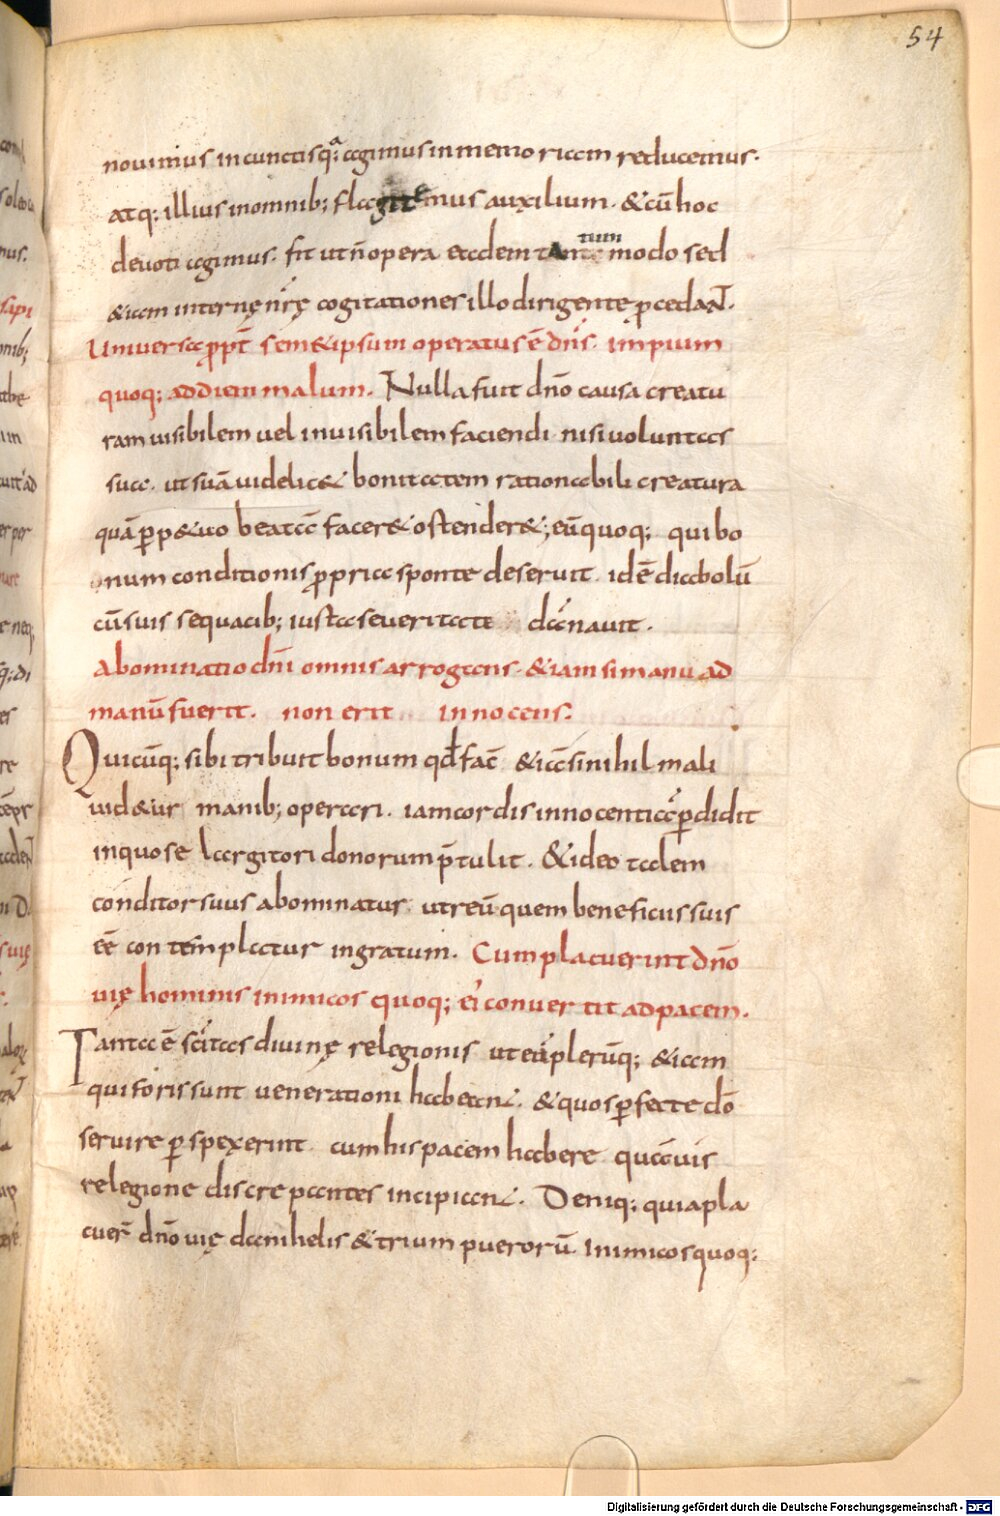 54
nouimus incunctis q;a agimus inmemoriam reducemus.
atq; illius inomnib; flagitemus auxilium. &cū hoc
deuoti agimus. fit utn̄ opera eadem tantummodo sed
&iam internę nr̄ę cogitationes illo dirigente ꝓcedant.
Uniuersa ꝓpt̄ sem&ipsum operatus ē dn̄s. impium
quoq; addiem malum. Nulla fuit dn̄o causa creatu
ram uisibilem uel inuisibilem faciendi nisi uoluntas
sua. ut suā uidelic& bonitatem rationabili creatura
quā ꝑp&uo beatā facer& ostender&; eūquoq; qui bo
num conditionis ꝓpria sponte deseruit. idē diabolū
cū suis sequacib; iusta seueritate dānauit.
Abominatio dn̄i omnis arrogans. &iam simanu ad
manū fuerit. non erit innocens.
Quicūq; sibi tribuit bonum qđ fac̄ &iā sinihil mali
uid&ur manib; operari. iam cordis innocentiā ꝑdidit
inquo se largitori donorum p̄tulit. &ideo tadem
conditor suus abominatur. utreū quem beneficiis suis
eē contemplatur ingratum. Cum placuerint dn̄o
uię hominis inimicos quoq; ei conuertit adpacem.
Tanta ē scītas diuinę relegionis ut ei plerūq; &iam
qui foris sunt uenerationi habeant. &quos ꝑfecte dō
seruire ꝑspexerint cum his pacem habere quāuis
relegione discrepantes incipiant. Deniq; quia pla
cuer̄ dn̄o uię danihelis &trium puerorū. Inimicos quoq;
Digitalisierung gefördert durch die Deutsche Forschungsgemeinschaft - DFG